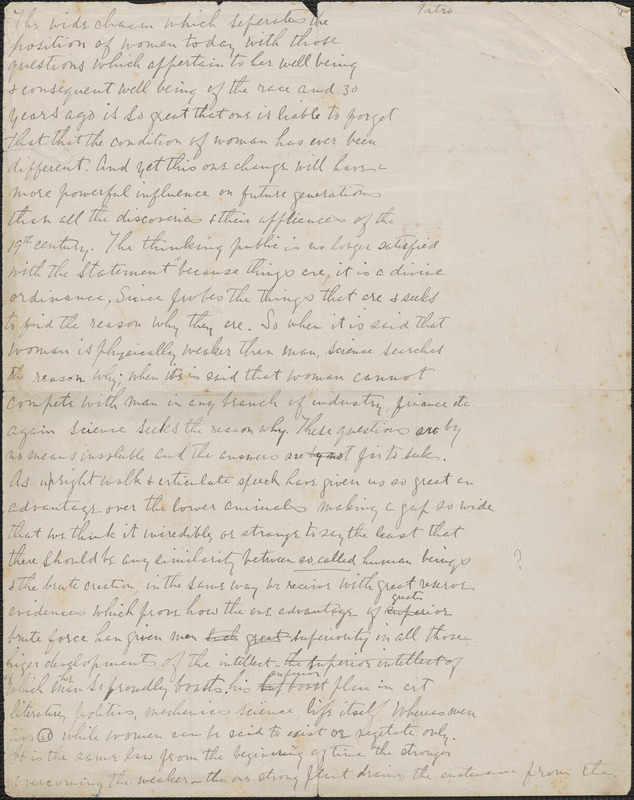 Intro
The wide chasm which seperates the
position of women today with those
questions which appertain to her well being
& consequent well being of the race and 30
years ago is so great that one is liable to forget
that that the condition of woman has ever been
different. And yet this one change will have a
more powerful influence on future generations
than all the discoveries & their appliances of the
19th century. The thinking public is no longer satisfied
with the statement "because things are, it is a divine
ordinance, Since probes the things that are & seeks
to find the reason why they are. So when it is said that
woman is physically weaker than man, science searches
the reason why; when it is said that woman cannot
compete with man in any branch of industry, finance etc
again science seeks the reason why. These questions are by
no means insoluble and the answers are by not far to seek.
As upright walk & articulate speech have given us so great an
advantage over the lower animals making a gap so wide
that we think it incredible, or strange to say the least that
there should be any similarity between so called human beings ?
& the brute creation, in the same way we receive with great reserve
evidences which prove how the one advantage of superior
greater
brute force has given man such great superiority in all those
higer developments of the intellect the superior intellect of
which man so proudly boasts, his superior place in art
literature, politics, mechanics science, life itself whereas men
live while women can be said to exist or vegetate only.
It is the same law from the beginning of time the stronger
overcoming the weaker_ the one strong plant draws the sustenance from the